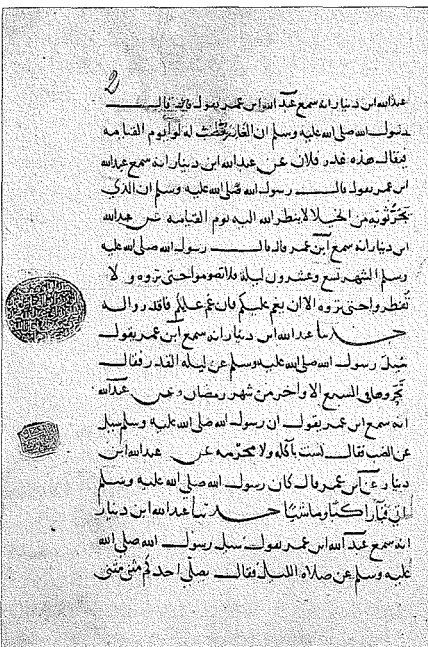 2
عبدالله ابن دينار انه سمع عبدالله ابن عمر يقول قال
رسول الله صلى الله عليه وسلم ان الغادر له لوا يوم القيامه
فيقال هذه غدره فلان عن عبدالله ابن دينار انه سمع عبدالله
ابن عمر يقول قال رسول الله صلى الله عليه وسلم ان الذي
يجر ثوبه من الخيلا لا ينظر الله اليه يوم القيامه عن عبدالله
ابن دينار انه سمع ابن عمر قال قال رسول الله صلى الله عليه
وسلم الشهر تسع وعشرون ليلة فلا تصوموا حتى تروه ولا
تفطروا حتى تروه الا ان يغم عليكم فان غم عليكم فاقدروا له
حدثنا عبدالله ابن دينار انه سمع ابن عمر يقول
سيل رسول الله صلى الله عليه وسلم عن ليله القدر فقال
تحروها في السبع الاواخر من شهر رمضان وعن عبدالله
انه سمع ابن عمر يقول ان رسول الله صلى الله عليه وسلم سيل
عن الضب فقال لست باكله ولا محرمه عن عبدالله ابن
دينار عن ابن عمر قال كان رسول الله صلى الله عليه وسلم
ياتي قبا راكبا وماشيا حدثنا عبدالله ابن دينار
انه سمع عبدالله ابن عمر يقول سيل رسول الله صلى الله
عليه وسلم عن صلاه الليل فقال يصلي احدكم مثنى مثنى